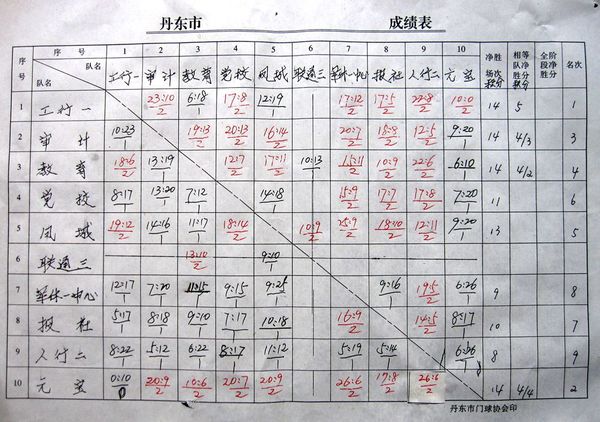 丹东市 成绩表
序号 序号 1 2 3 4 5 6 7 8 9 10 净胜场次积分 相等队净胜分积分 全阶段净胜分 名次
队名 队名 工行一 审计 教育 党校 凤城 联通三 军休一中心 报社 人行二 元宝
1 工行一 23:10/2 6:18/1 17:8/2 12:19/1 17:12/2 17:5/2 22:8/2 10:0/2 14 5 1
2 审计 10:23/1 19:13/2 20:13/2 16:14/2 20:7/2 18:8/2 12:5/2 9:20/1 14 4/3 3
3 教育 18:6/2 13:19/1 12:7/2 17:11/2 10:13/1 15:11/2 10:9/2 22:6/2 6:10/1 14 4/2 4
4 党校 8:17/1 13:20/1 7:12/1 14:18/1 15:9/2 17:7/2 17:8/2 7:20/1 11 6
5 凤城 19:12/2 14:16/1 11:17/1 18:14/2 10:9/2 25:9/2 18:10/2 12:11/2 9:20/1 13 5
6 联通三 13:10/2 9:10/1
7 军休一中心 12:17/1 7:20/1 11:15/1 9:15/1 9:25/1 9:16/1 19:5/2 6:26/1 9 8
8 报社 5:17/1 8:18/1 9:10/1 7:17/1 10:18/1 16:9/2 14:5/2 8:17/1 10 7
9 人行二 8:22/1 5:12/1 6:22/1 8:17/1 11:12/1 5:19/1 5:14/1 8 9
10 元宝 0:10/0 20:9/2 10:6/2 20:7/2 20:9/2 26:6/2 17:8/2 26:6/2 14 4/4 2
丹东市门球协会印